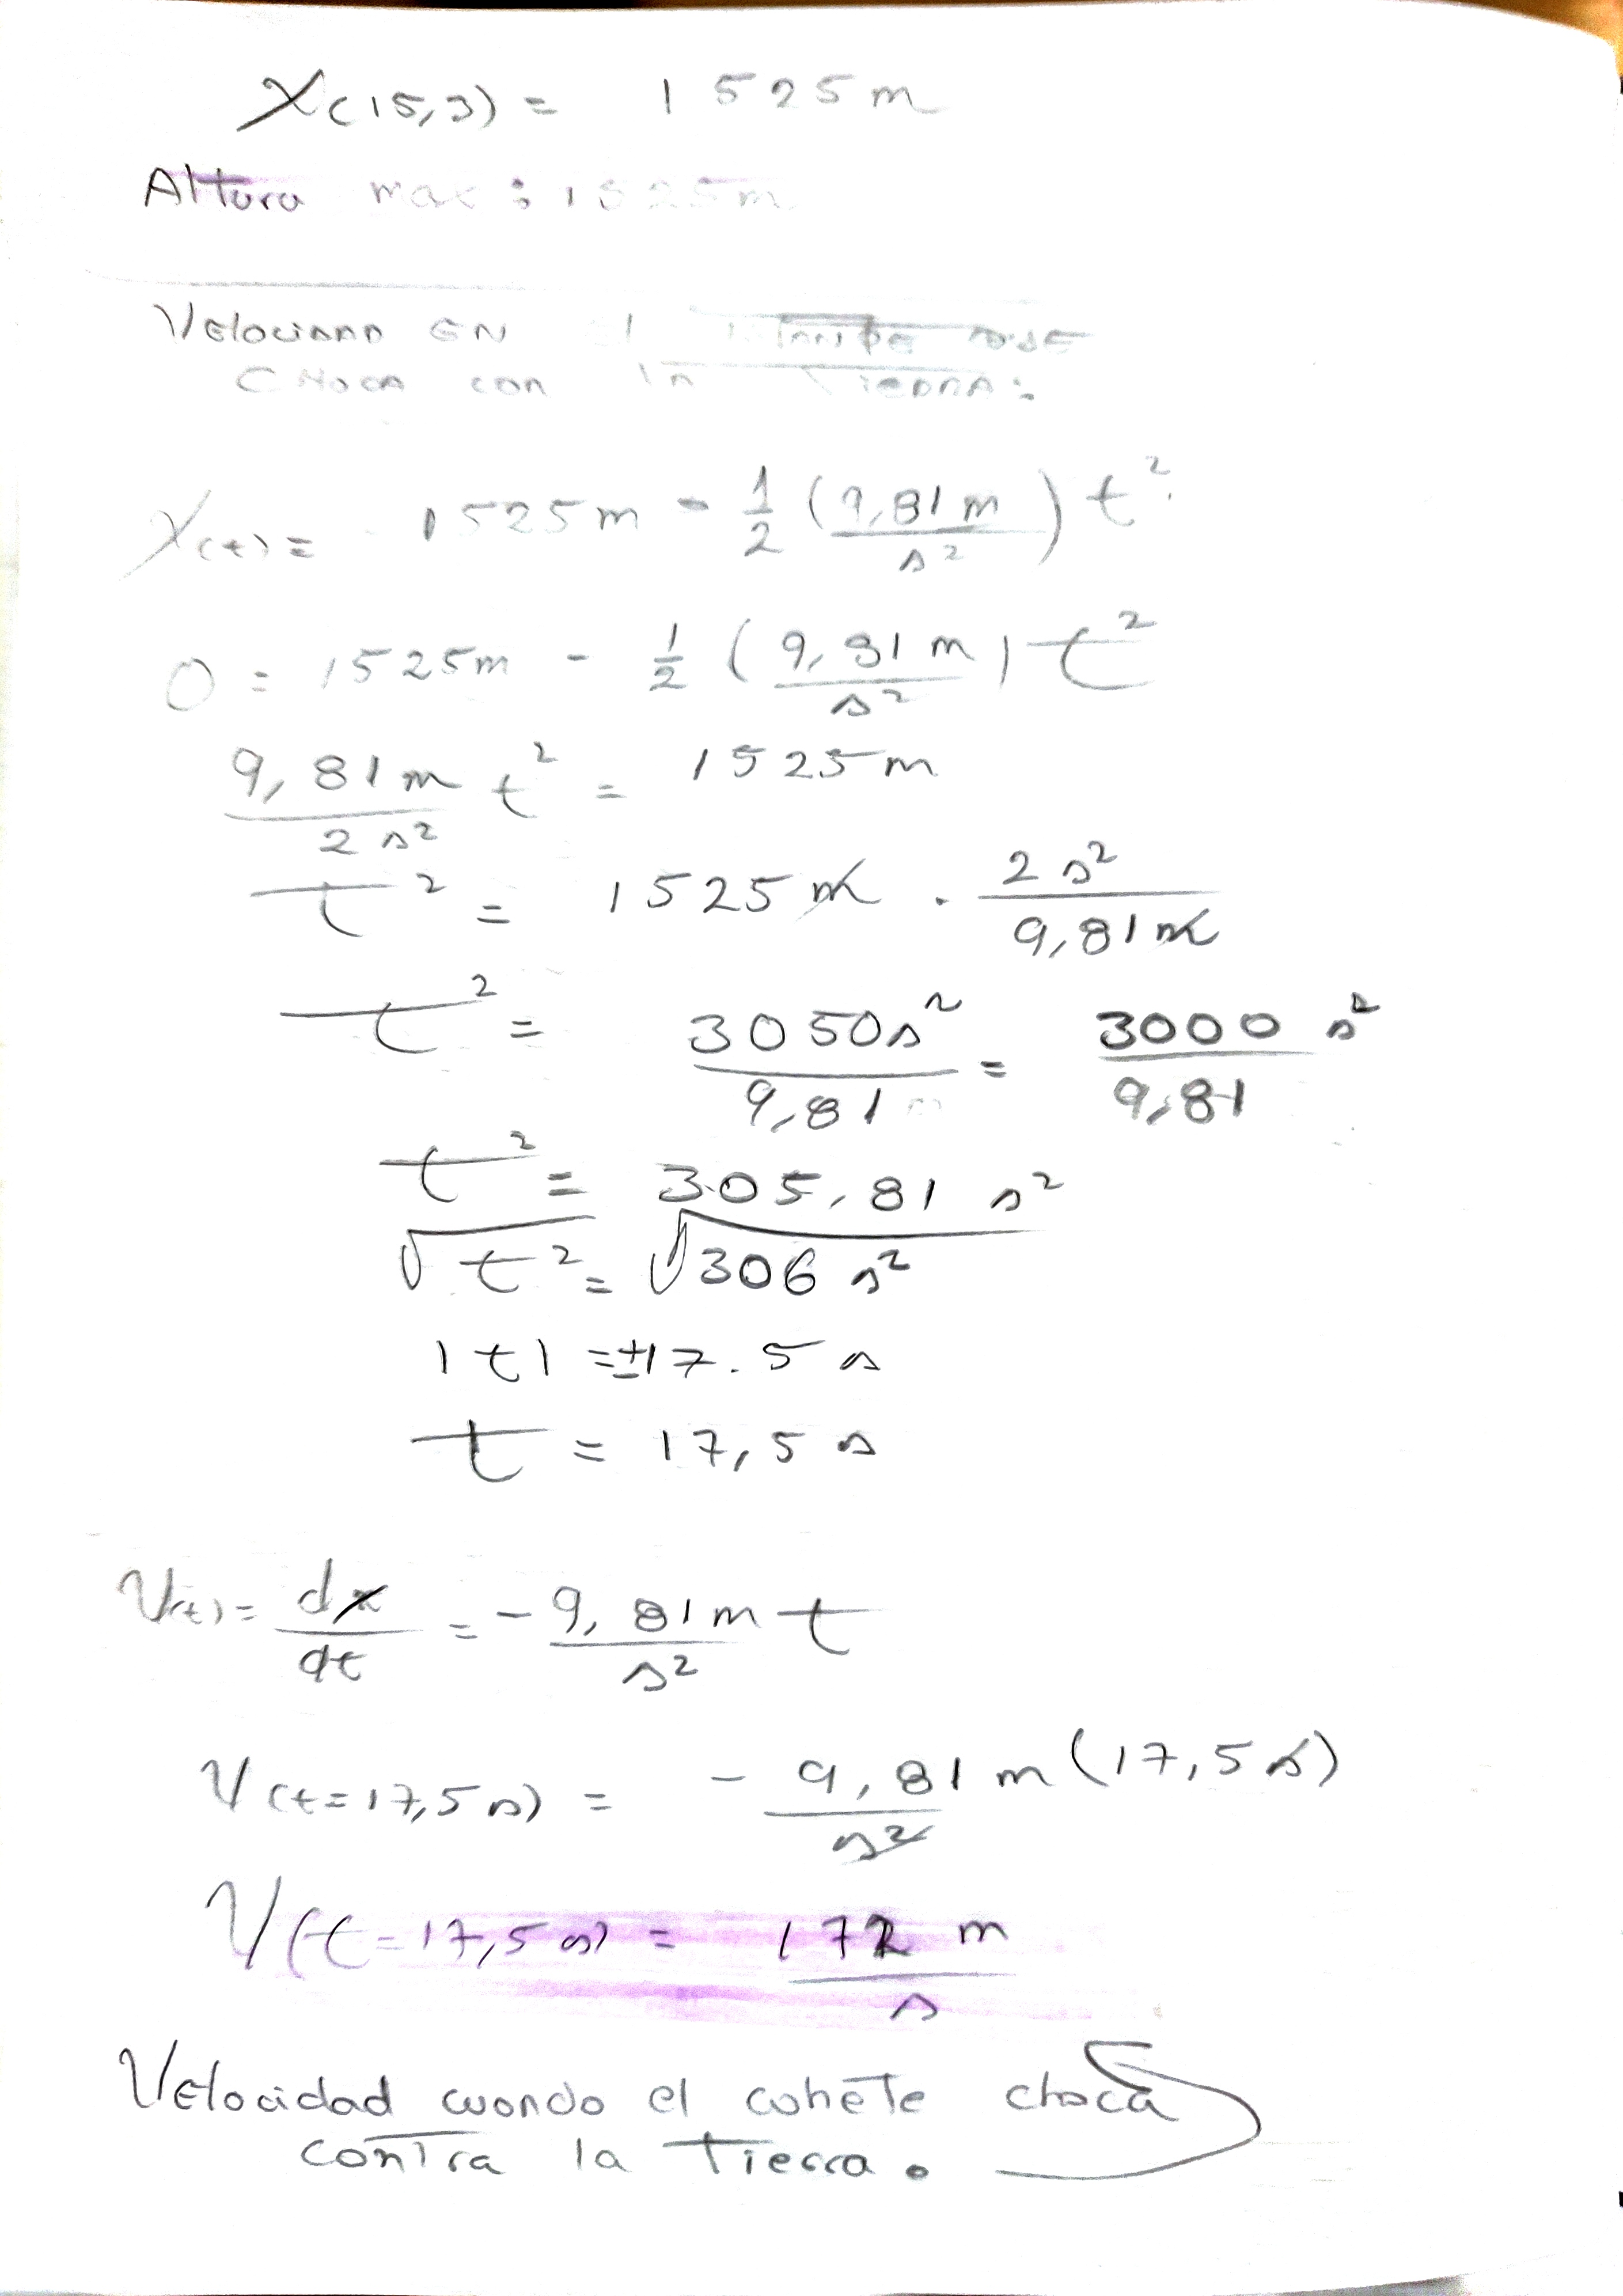 X(15,3) = 1525m
Altura max: 1525m
Velocidad EN el instante QUE
CHOCA con la TIERRA:
X(t) = 1525m - 1/2 (9,81m/s²) t²
0 = 1525m - 1/2 (9,81m/s²) t²
9,81m/2s² t² = 1525m
t² = 1525m . 2s²/9,81m
t² = 3050s²/9,81 = 3000s²/9,81
t² = 305,81 s²
√t² = √306 s²
|t| = ±17.5 s
t = 17,5 s
V(t) = dx/dt = -9,81m/s² t
V(t=17,5s) = - 9,81m/s² (17,5s)
V(t=17,5s) = 172 m/s
Velocidad cuando el cohete choca
contra la Tierra.